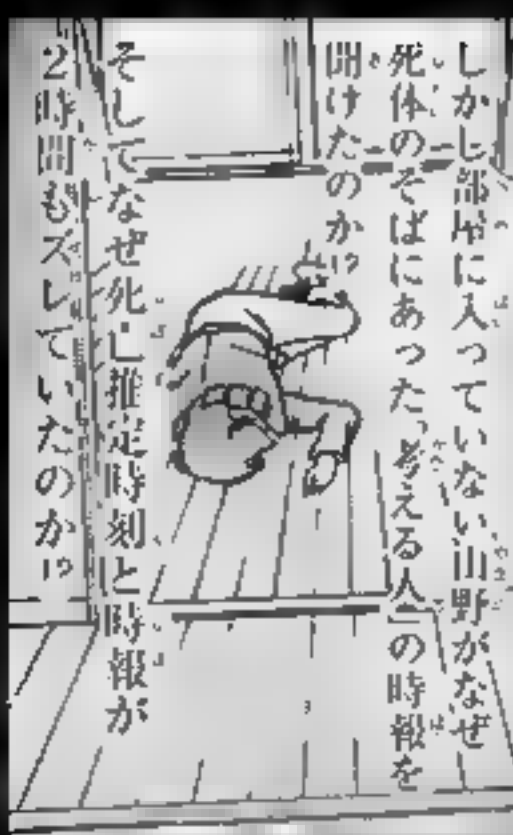 しかし部屋に入っていない山野がなぜ
死体のそばにあった「考える人」の時報を
聞けたのか!?
そしてなぜ死亡推定時刻と時報が
2時間もズレていたのか!?